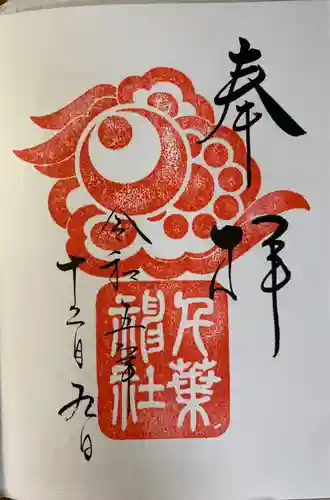 奉拝
片葉
神社
令和五年
十二月九日